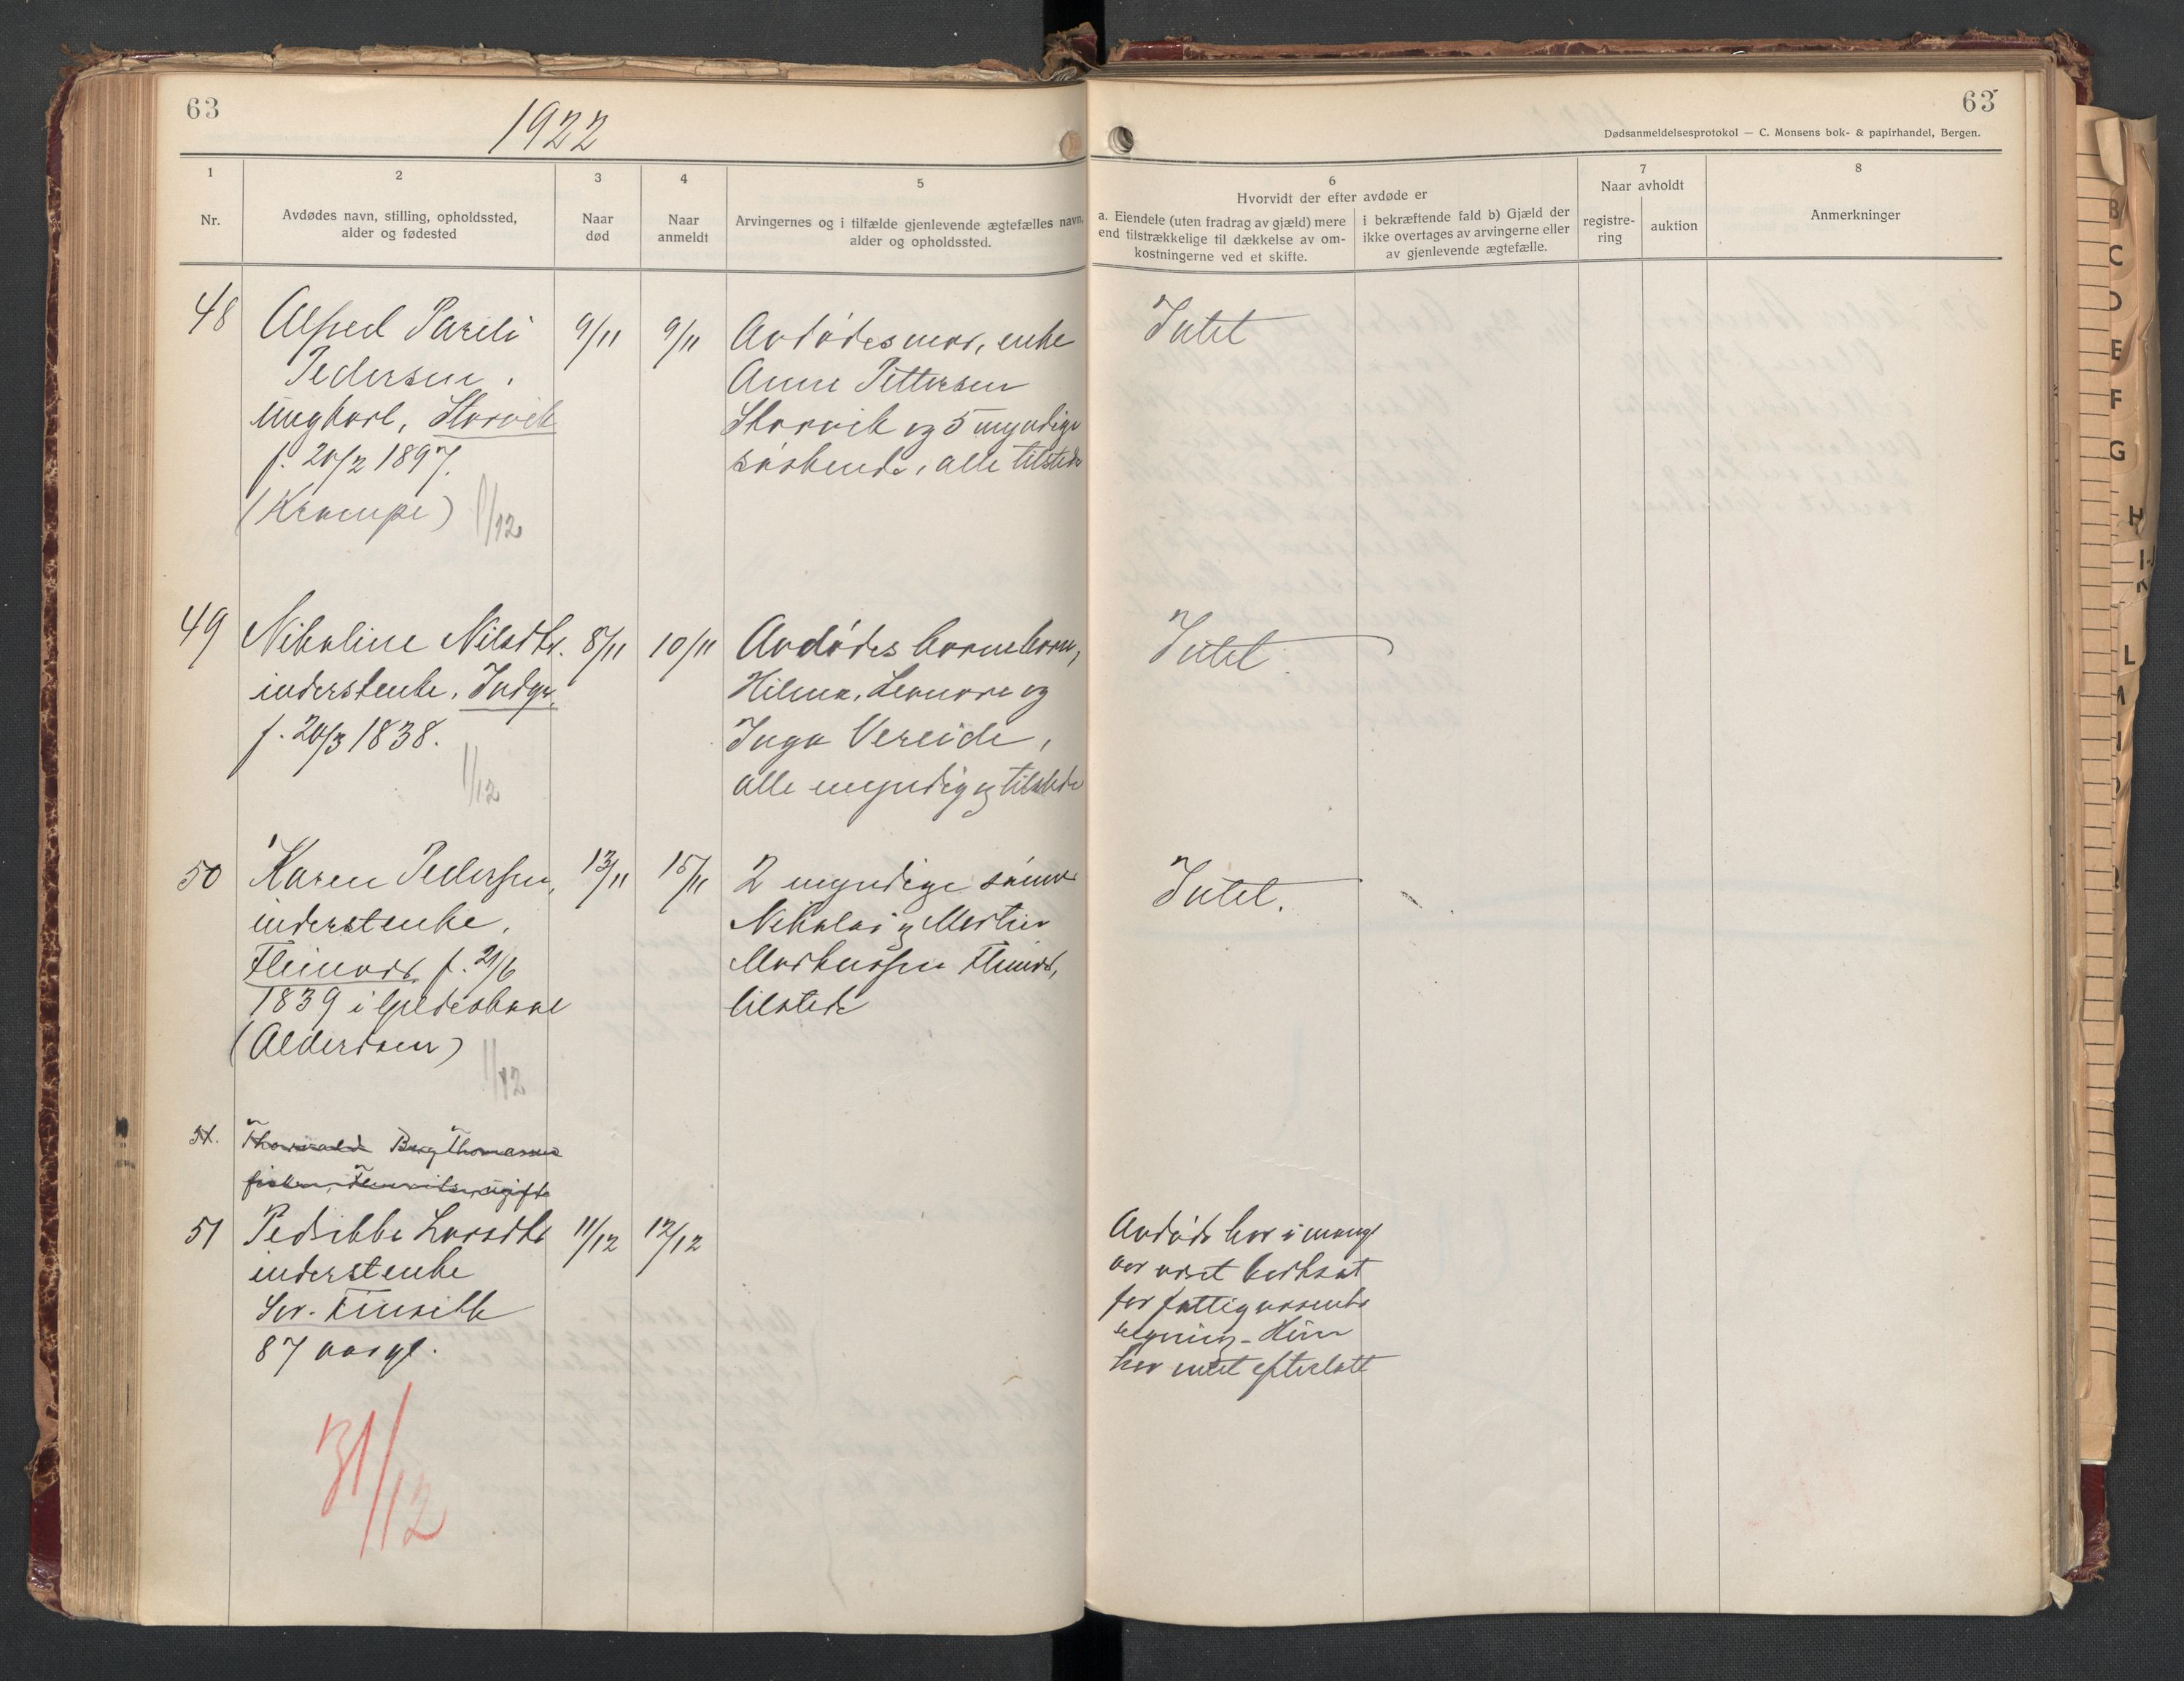 63
1922
63
Dødsanmeldelsesprotokol — C. Monsens bok- & papirhandel, Bergen.
1
Nr.
2
Avdødes navn, stilling, opholdssted,
alder og fødested
3
Naar
død
4
Naar
anmeldt
5
Arvingernes og i tilfælde gjenlevende ægtefælles navn,
alder og opholdssted.
6
Hvorvidt der efter avdøde er
a. Eiendele (uten fradrag av gjæld) mere
end tilstrækkelige til dækkelse av om-
kostningerne ved et skifte.
i bekræftende fald b) Gjæld der
ikke overtages av arvingerne eller
av gjenlevende ægtefælle.
7
Naar avholdt
registre-
ring
auktion
8
Anmerkninger
48
Alfred Pareli
Pedersen,
ungkarl, Storvik
f. 20/2 1897.
(Krampe)
1/12
9/11
9/11
Avdødes mor, enke
Anne Pettersen
Storvik og 5 myndige
søskende, alle tilstede
Intet
49
Nikoline Nilsdtr.
inderstenke, Indyr,
f. 20/3 1838.
1/12
8/11
10/11
Avdødes barnebarn,
Hilma, Leonore og
Inga Vereide,
alle myndig og tilstede
Intet
50
Karen Pedersen,
inderstenke,
Fleinvær f. 21/6
1839 i Gildeskaal
(Alderdom)
1/12
13/11
15/11
2 myndige sønner
Nikolai og Martin
Markussen Fleinvær,
tilstede
Intet.
51.
Thorvald Berg Thomassen
fisker, ugift
51
Pedsibba Larsdtr
inderstenke
Sør. Finsæth
87 aar gl.
31/12
11/12
12/12
Avdøde har i mange
aar været bortsat
for fattigvæsenets
regning - Hun
har intet efterlatt
B
C
D
E
F
G
H
I-J
K
L